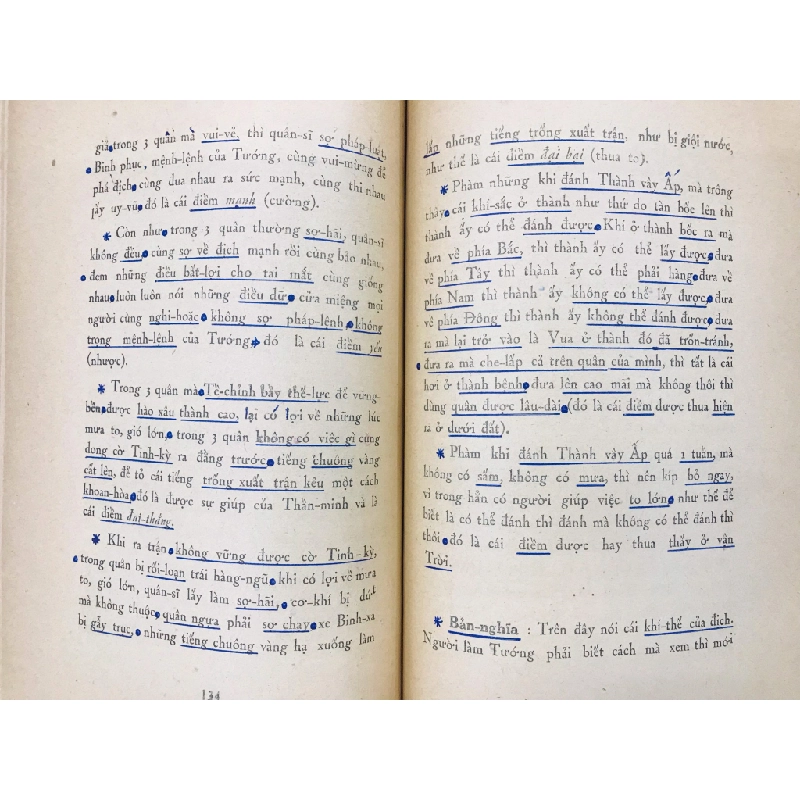 giả trong 3 quân mà vui-vẻ, thì quân-sĩ sợ pháp-luật,
Binh phục, mệnh-lệnh của Tướng, cùng vui-mừng để
phá địch, cùng đua nhau ra sức mạnh, cùng thi nhau
lấy uy-vũ, đó là cái điềm mạnh (cường).
Còn như, trong 3 quân thường sợ-hãi, quân-sĩ
không đều, cùng sợ về địch mạnh rồi cùng bảo nhau,
đem những điều bất-lợi cho tai mắt cùng giống
nhau, luôn luôn nói những điều dữ, cửa miệng mọi
người cùng nghi-hoặc, không sợ pháp-lệnh, không
trọng mệnh-lệnh của Tướng, đó là cái điềm yếu
(nhược).
Trong 3 quân mà Tề-chỉnh bầy thế-lực để vững-
bền, được hào sâu thành cao, lại có lợi về những lúc
mưa to, gió lớn, trong 3 quân không có việc gì cùng
dung cờ Tinh-kỳ ra đằng trước, tiếng chuông vàng
cất lên, để tỏ cái tiếng trống xuất trận kêu một cách
khoan-hòa, đó là được sự giúp của Thần-minh và là
cái điềm đại-thắng.
Khi ra trận, không vững được cờ Tinh-kỳ,
trong quân bị rối-loạn trái hàng-ngũ, khi có lợi về mưa
to, gió lớn, quân-sĩ lấy làm sợ-hãi, cơ-khí bị đứt
mà không thuộc, quân ngựa phải sợ chạy, xe Binh-xa
bị gẫy trục, những tiếng chuông vàng hạ xuống làm
134
lấn những tiếng trống xuất trận, như bị giội nước,
như thế là cái điềm đại bại (thua to).
Phàm những khi đánh Thành vây Ấp, mà trông
thấy cái khí-sắc ở thành như thứ do tàn bốc lên thì
thành ấy có thể đánh được. Khí ở thành bốc ra mà
đưa về phía Bắc, thì thành ấy có thể lấy được, đưa
về phía Tây thì thành ấy có thể phải hàng, đưa về
phía Nam thì thành ấy không có thể lấy được, đưa
về phía Đông thì thành ấy không thể đánh được, đưa
ra mà lại trở vào là Vua ở thành đó đã trốn-tránh,
đưa ra mà che-lấp cả trên quân của mình, thì tất là cái
hơi ở thành bệnh, đưa lên cao mãi mà không thôi thì
dùng quân được lâu-dài, (đó là cái điềm được thua hiện
ra ở dưới đất).
Phàm khi đánh Thành vây Ấp quá 1 tuần, mà
không có sấm, không có mưa, thì nên kíp bỏ ngay,
vì trong hẳn có người giúp việc to lớn, như thế để
biết là có thể đánh thì đánh mà không có thể đánh thì
thôi, đó là cái điềm được hay thua thấy ở vận
Trời.
Bản-nghĩa : Trên đây nói cái khí-thế của địch.
Người làm Tướng phải biết cách mà xem thì mới